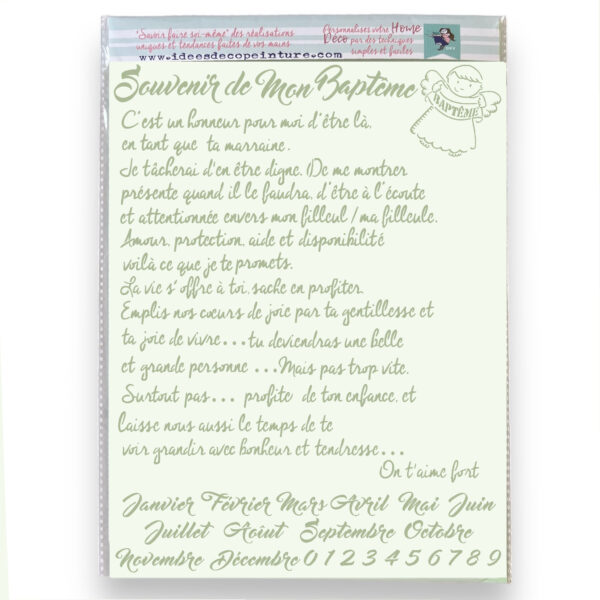 "Savoir faire soi-même" des réalisations
uniques et tendances faites de vos mains
www.ideesdecopeinture.com
Personnalisez votre Home
Déco par des techniques
simples et faciles
Souvenir de Mon Baptême
BAPTÊME
C'est un honneur pour moi d'être là,
en tant que ta marraine.
Je tâcherai d'en être digne. De me montrer
présente quand il le faudra, d'être à l'écoute
et attentionnée envers mon filleul / ma filleule.
Amour, protection, aide et disponibilité
voilà ce que je te promets.
La vie s'offre à toi, sache en profiter.
Emplis nos cœurs de joie par ta gentillesse et
ta joie de vivre...tu deviendras une belle
et grande personne ...Mais pas trop vite.
Surtout pas... profite de ton enfance, et
laisse nous aussi le temps de te
voir grandir avec bonheur et tendresse...
On t'aime fort
Janvier Février Mars Avril Mai Juin
Juillet Août Septembre Octobre
Novembre Décembre 0 1 2 3 4 5 6 7 8 9